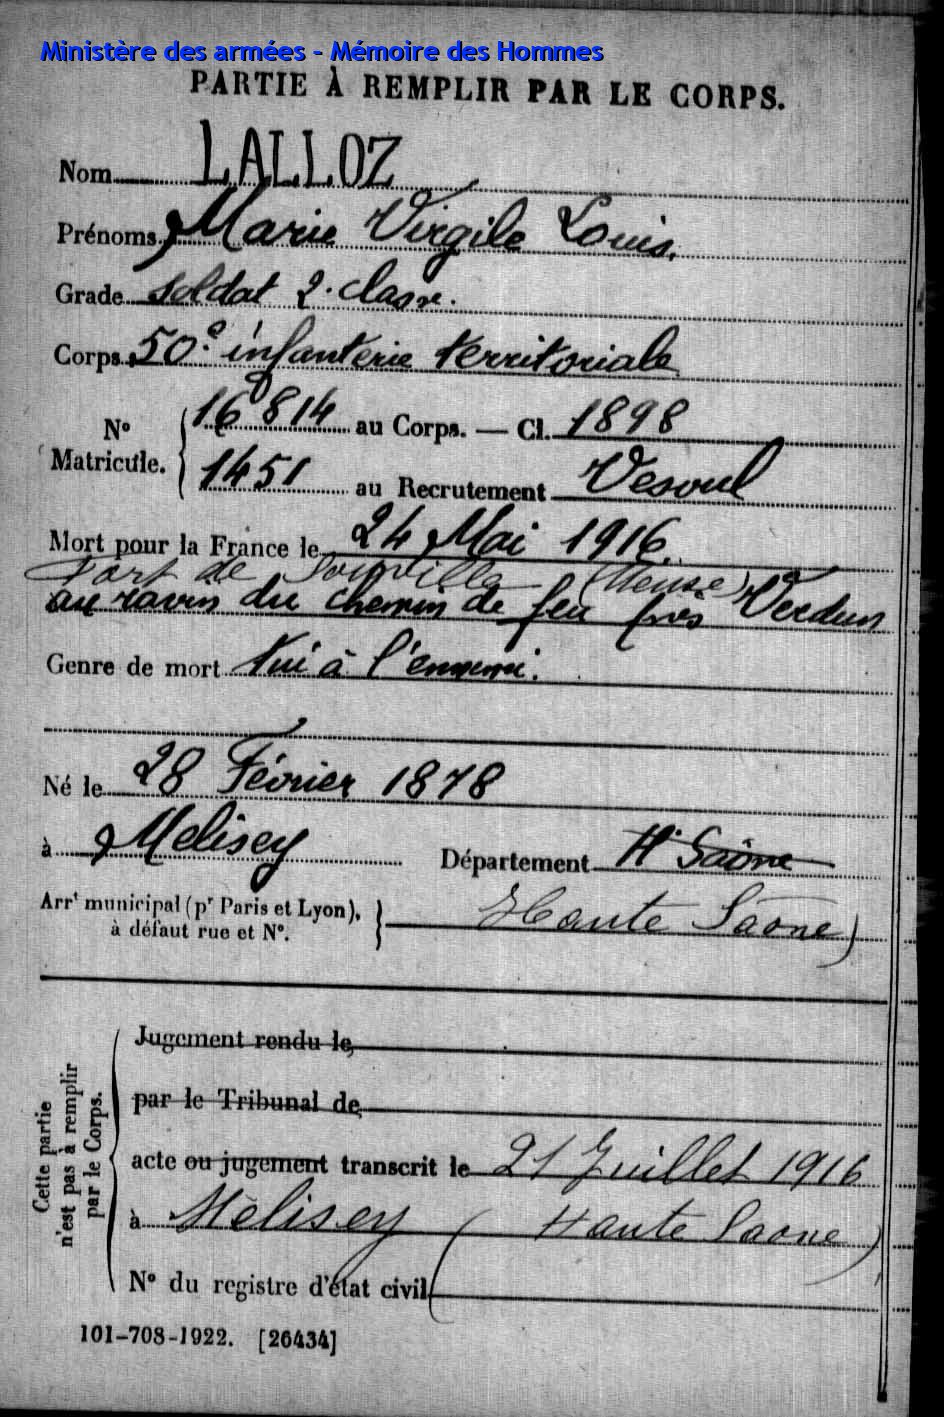 Ministère des armées - Mémoire des Hommes
PARTIE À REMPLIR PAR LE CORPS.
Nom LALLOZ
Prénoms Marie Virgile Louis.
Grade soldat 2e classe.
Corps 50e infanterie territoriale
No Matricule. 16814 au Corps. — Cl. 1898
1451 au Recrutement Vesoul
Mort pour la France le 24 Mai 1916.
Fort de Souville (Meuse)
au ravin du chemin de feu près Verdun
Genre de mort tué à l'ennemi.
Né le 28 Février 1878
à Melisey Département Hte Saône
Arrt municipal (pr Paris et Lyon), Haute Saône)
à défaut rue et No.
Cette partie n'est pas à remplir par le Corps.
Jugement rendu le
par le Tribunal de
acte ou jugement transcrit le 21 Juillet 1916
à Mélisey (Haute Saone)
No du registre d'état civil
101-708-1922. [26434]